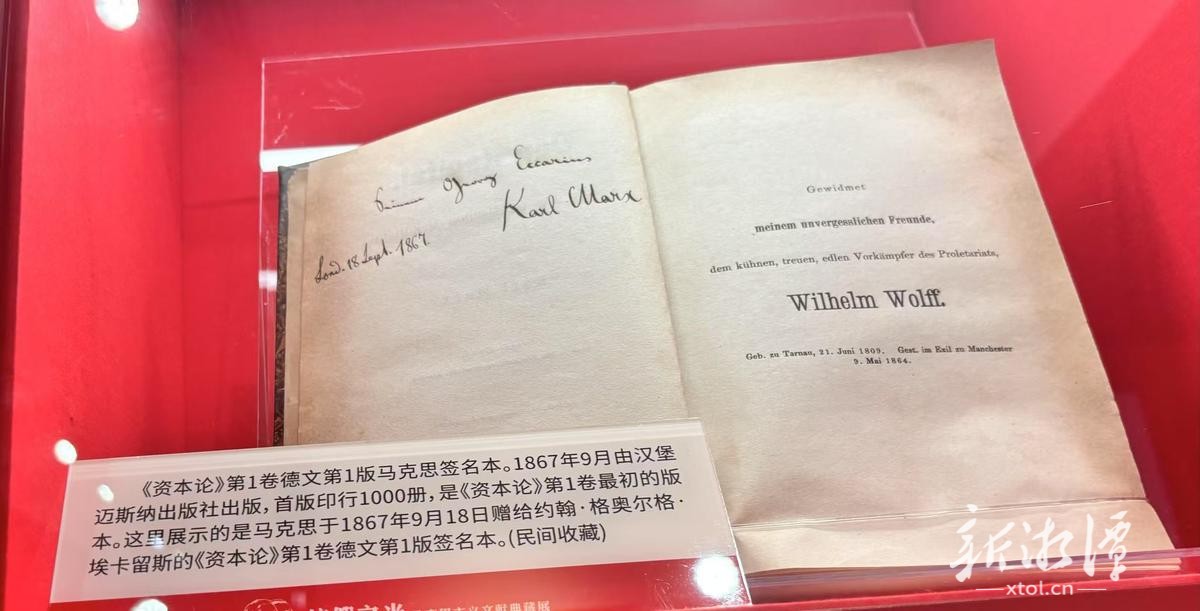 Georg Eccarius
Karl Marx
Lond. 18 Sept. 1867.
Gewidmet
meinem unvergesslichen Freunde,
dem kühnen, treuen, edlen Vorkämpfer des Proletariats,
Wilhelm Wolff.
Geb. zu Tarnau, 21. Juni 1809. Gest. im Exil zu Manchester
9. Mai 1864.
《资本论》第1卷德文第1版马克思签名本。1867年9月由汉堡
迈斯纳出版社出版，首版印行1000册，是《资本论》第1卷最初的版
本。这里展示的是马克思于1867年9月18日赠给约翰·格奥尔格·
埃卡留斯的《资本论》第1卷德文第1版签名本。(民间收藏)
新湘潭
xtol.cn